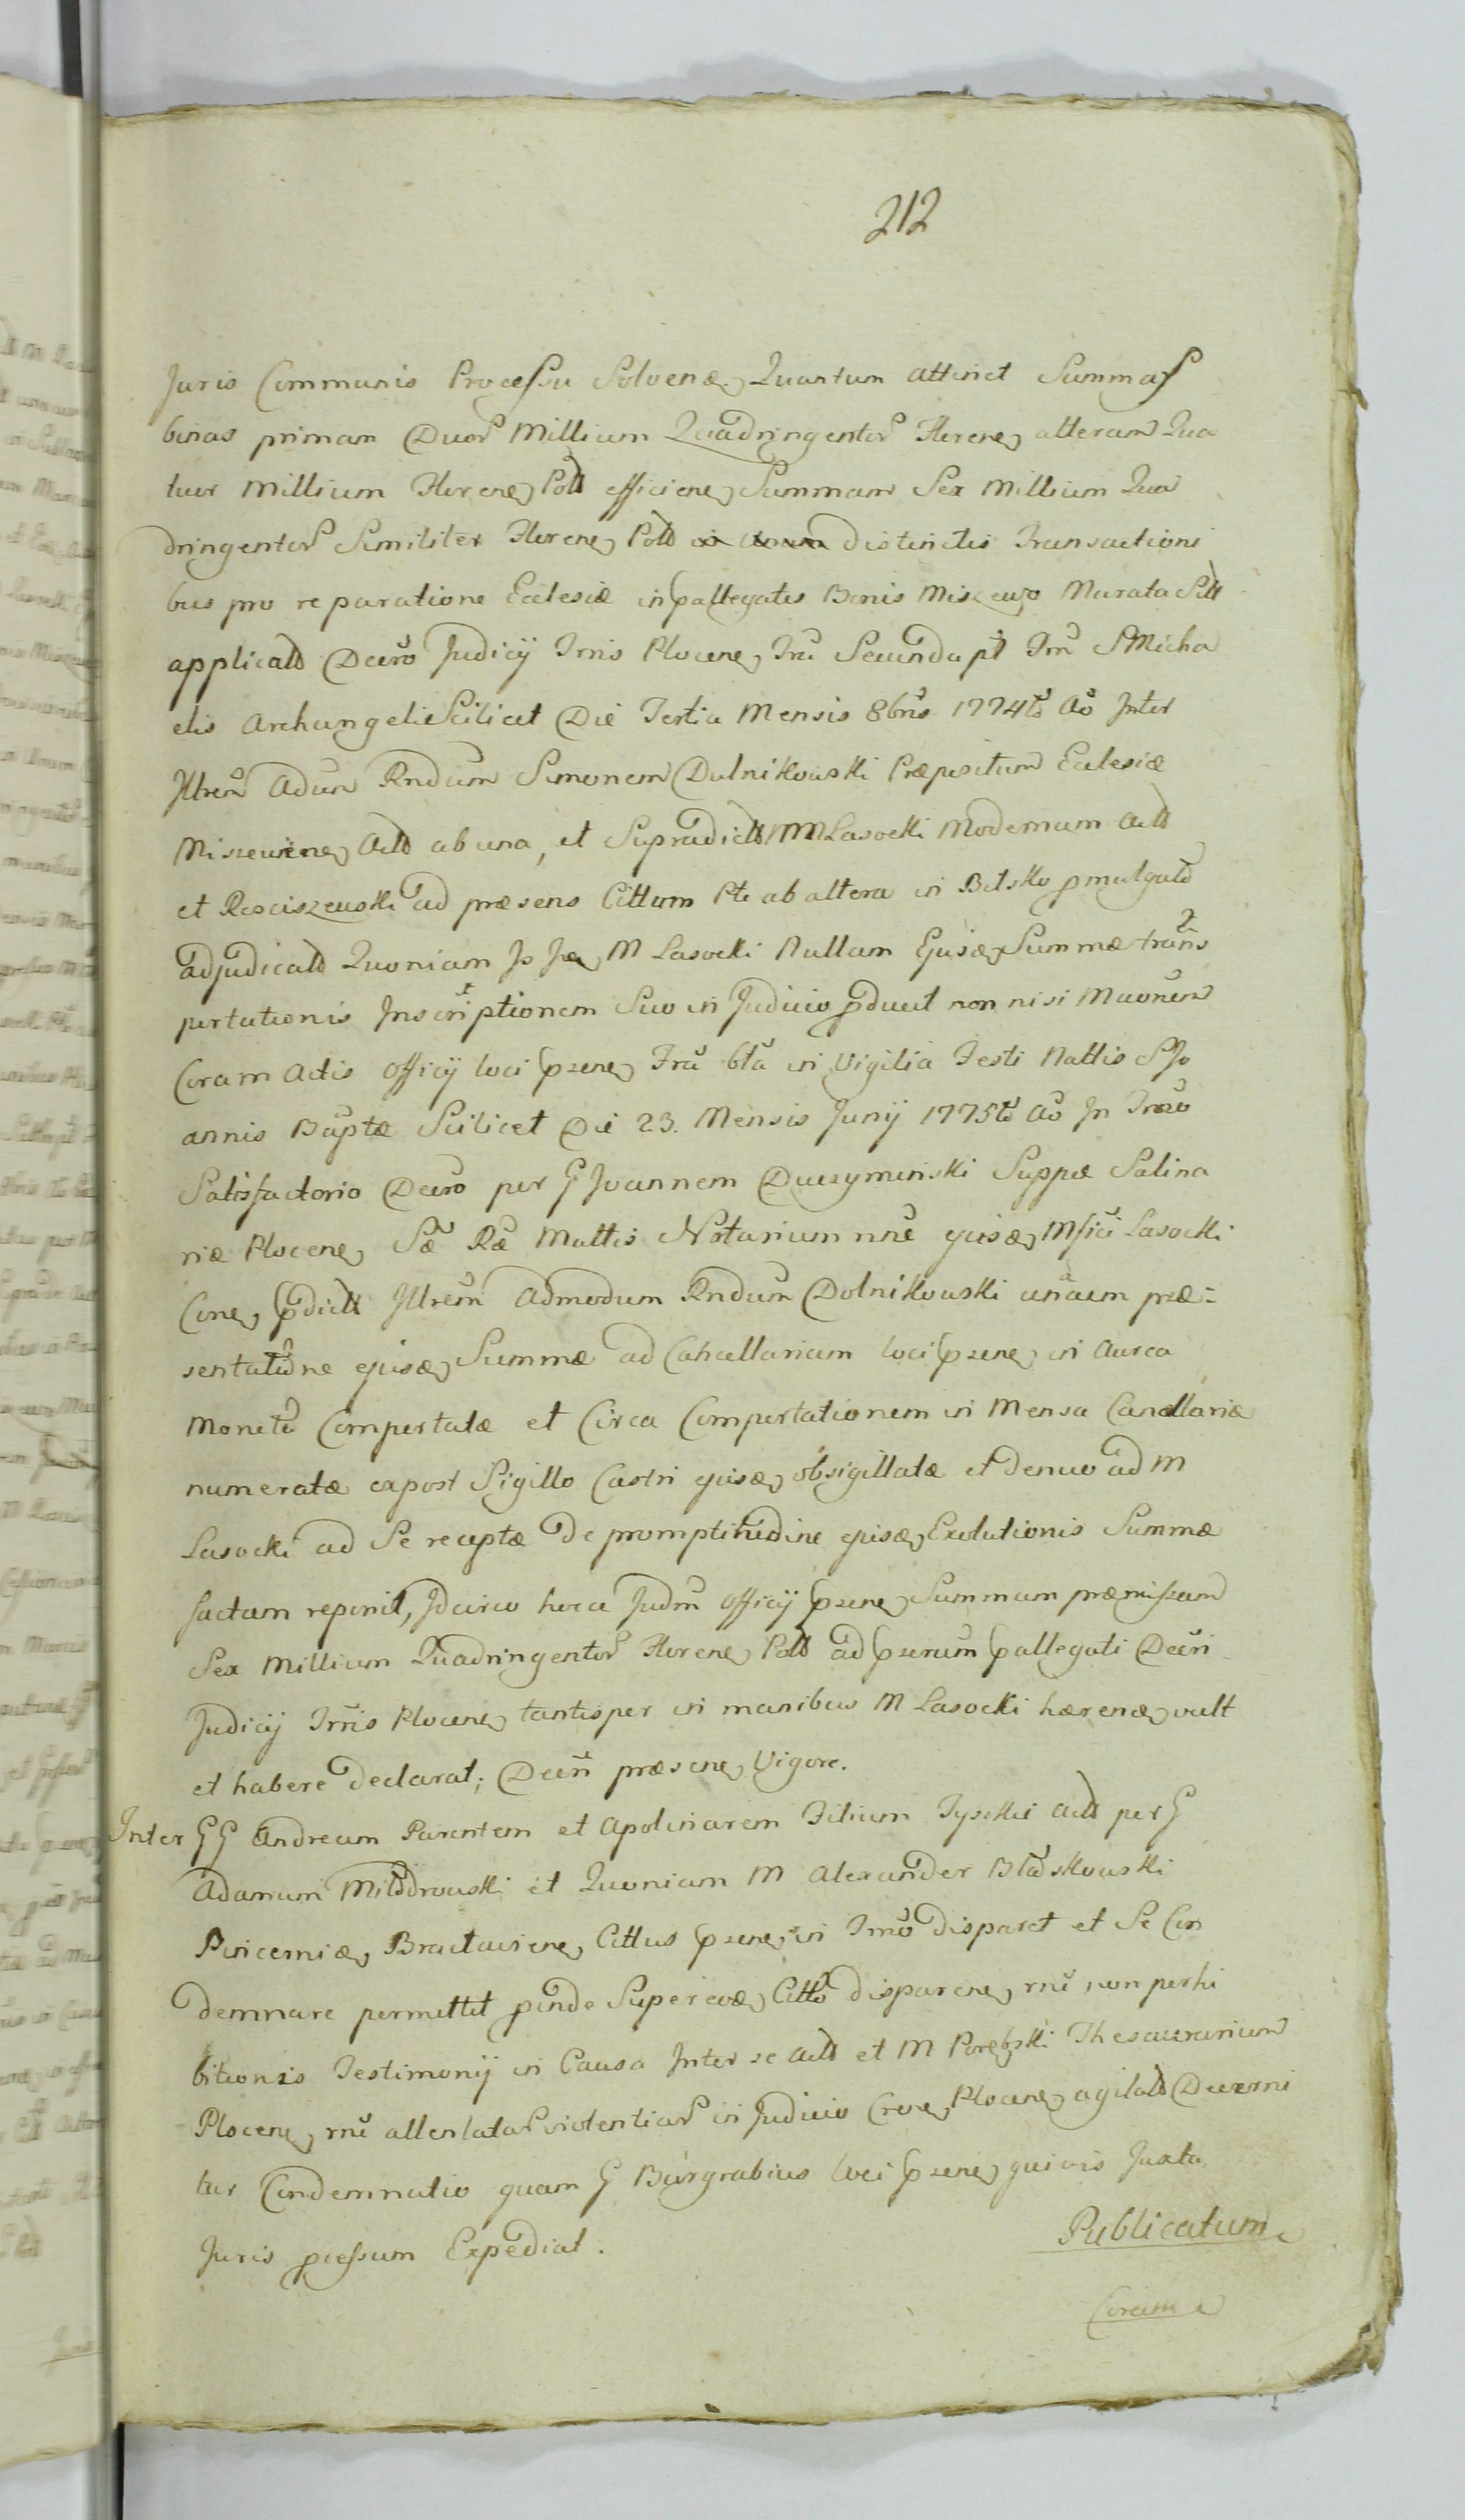 212
Juris Communis Processu Solvenæ, Quantum attinet Summas
binas primam Duor Millium Quadringentor Florene, alteram Qua
tuor Millium Florene, Poll efficiene, Summam Sex Millium Qua
dringentor Similiter Florene, Poll distinctis Transactioni
bus pro reparatione Eclesiæ in pallegatis Bonis Miszewo Murata Sitt
applicatt Decro Judicij Trris Plocene, Fru Secunda pt Fm S Micha
elis Archangeli Scilicet Die Tertia Mensis 8bris 1774to Ao Inter
Jllrem Adum Rndum Simonem Dulnikowski Præpositum Eclesiæ
Miszewiene, Actt ab una, et Supradictt MM Lasocki Modernum Actt
et Rosciszewski ad præsens Cittum Pte ab altera in Bilsko pmulgatt
adjudicatt Quoniam Is Ipe, M Lasocki Nullam Ejusæ, Summæ trans
portationis Inscriptionem Suo in Judicio pduxit non nisi Maonem
Coram Actis Officij loci psene, Fra 6ta in Vigilia Festi Nattis S Jo
annis Baptæ Scilicet Die 23. Mensis Junij 1775to Ao In Trno
Satisfactorio Decro per G Joannem Duczyminski Suppæ Salina
riæ Plocene, Sæ Ræ Mattis Notarium nne ejusæ, Msici Lasocki
Cone, pdictt Jllrem Admodum Rndum Dolnikowski unacum præ=
sentatione ejusæ, Summæ ad Cancellariam loci psene, in Aurea
Moneta Comportatæ et Circa Comportationem in Mensa Cancellariæ
numeratæ expost Sigillo Castri ejusæ, obsigillatæ et denuo ad M
Lasocki ad Se receptæ de promptitudine ejusæ, Exolutionis Summæ
factam reponit, Idcirco hocce Judm Officij psene, Summam præmissam
Sex Millium Quadringentor Florene, Poll ad pserum pallegati Decri
Judicij Trris Plocene, tantisper in manibus M Lasocki hærenæ, vult
et habere declarat; Decri præsene, Vigore.
Inter GG Andream Parentem et Apolinarem Filium Tyskki Actt per G
Adamum Milodrowski et Quoniam M Alexander Bladskowski
Pincerniæ, Braclaviene, Cittus psene, in Trno disparet et Se Con
demnare permittit pinde Super eoæ, Citto disparene, rne non perhi
bitionis Testimonij in Causa Inter se Actt et M Porębski Thesaurarium
Plocene, rne allenlatar violentiar in Judicio Crene, Plocene, agitatt Decerni
tur Condemnatio quam G Burgrabius loci psene, quivis Juxta
Juris pcessum Expediat.
Publicatum
Coram